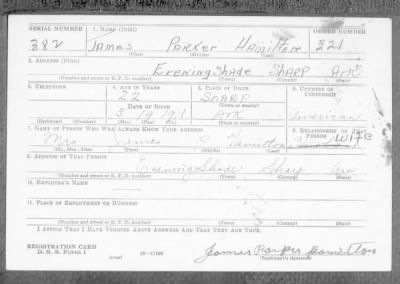 SERIAL NUMBER 1. NAME (Print) ORDER NUMBER
382 James Parker Hamilton 221
(First) (Middle) (Last)
2. ADDRESS (Print)
Evening Shade SHARP Ark
(Number and street or R. F. D. number) (Town) (County) (State)
3. TELEPHONE 4. AGE IN YEARS 5. PLACE OF BIRTH 6. COUNTRY OF CITIZENSHIP
22 SHARP
(Town or county)
DATE OF BIRTH Ark American
3 19 1918
(Exchange) (Number) (Mo.) (Day) (Yr.) (State or country)
7. NAME OF PERSON WHO WILL ALWAYS KNOW YOUR ADDRESS 8. RELATIONSHIP OF THAT PERSON
Wife
Mrs James Hamilton
(Mr., Mrs., Miss) (First) (Middle) (Last)
9. ADDRESS OF THAT PERSON
Evening Shade Sharp Ark
(Number and street or R. F. D. number) (Town) (County) (State)
10. EMPLOYER'S NAME
11. PLACE OF EMPLOYMENT OR BUSINESS
(Number and street or R. F. D. number) (Town) (County) (State)
I AFFIRM THAT I HAVE VERIFIED ABOVE ANSWERS AND THAT THEY ARE TRUE.
REGISTRATION CARD
D. S. S. FORM 1 (over) 16—17105
James Parker Hamilton
(Registrant's signature)